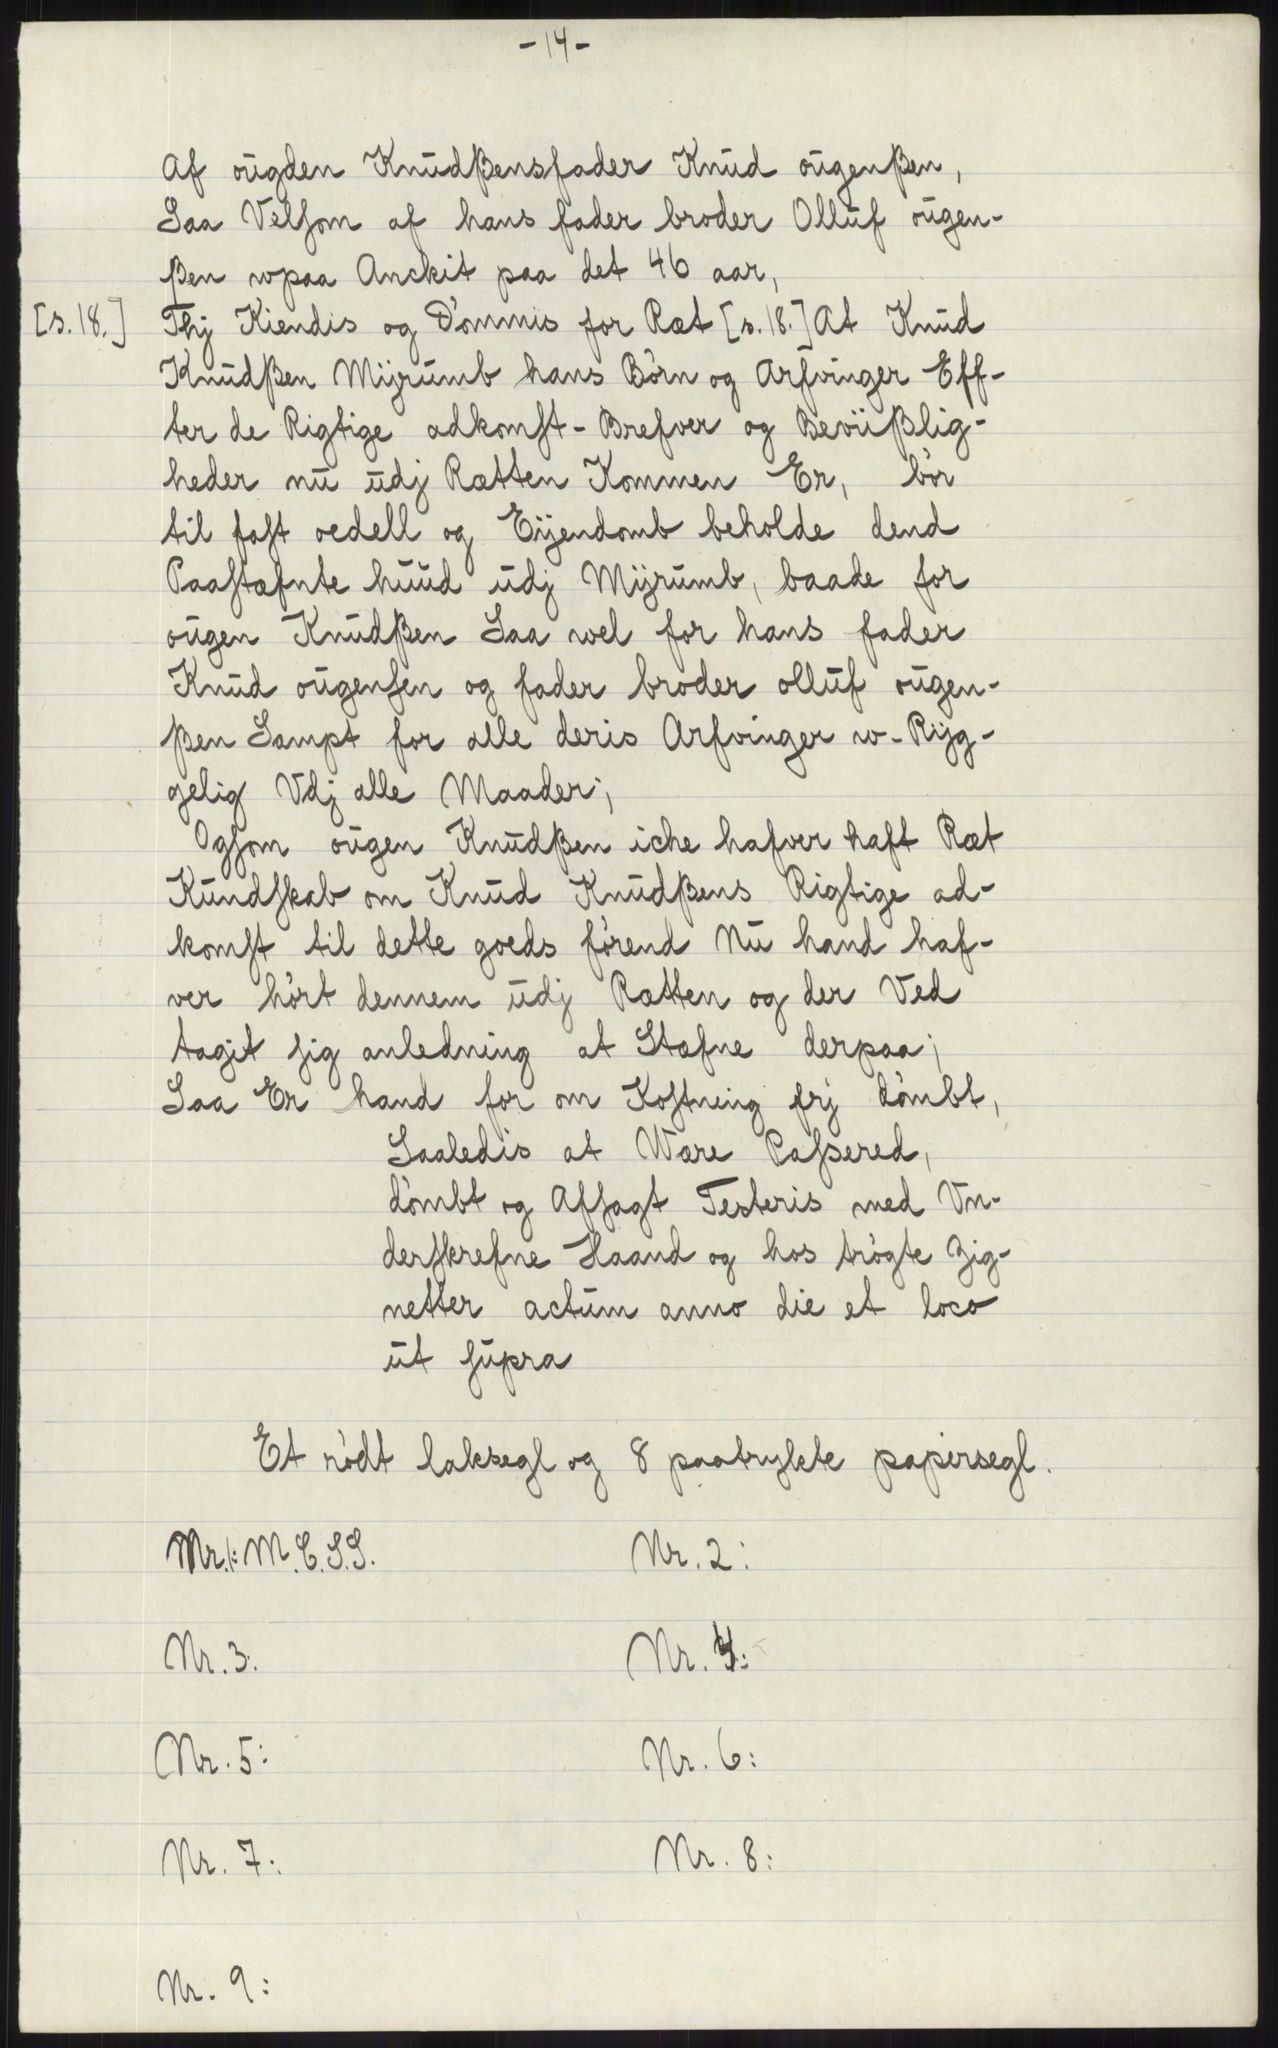 -14-
Af oŭgden Knŭdßensfader Knŭd oŭgenßen,
Saa Velsom af hans fader broder Ollŭf oŭgen-
ßen wpaa Anckit paa det 46 aar,
[s.18.] Thj Kiendis og Dömmis for Ræt [s.18.] At Knŭd
Knŭdßen Mÿrŭmb hans Börn og Arfvinger Eff-
ter de Rigtige adkomst-Brefver og Beviißlig-
heder nŭ ŭdj Rætten Kommen Er, bör
til fast oedell og Eÿendomb beholde dend
Paastæfnte hŭŭd ŭdj Mÿrŭmb, baade for
oŭgen Knŭdßen Saa wel for hans fader
Knŭd oŭgensen og fader broder ollŭf oŭgen-
ßen Sampt for alle deris Arfvinger w-Rÿg-
gelig Vdj alle Maader;
Ogsom oŭgen Knŭdßen iche hafver haft Ræt
Kŭndskab om Knŭd Knŭdßens Rigtige ad-
komst til dette goeds förend Nŭ hand haf-
ver hört dennem ŭdj Rætten og der Ved
tagit sig anledning at Stæfne derpaa;
Saa Er hand for om Kostning frj dömbt,
Saaledis at Wære Passered,
dömbt og Afsagt Testeris med Vn-
derskrefne Haand og hos trögte Zig-
netter actŭm anno die et loco
ŭt sŭpra
Et rödt laksegl og 8 paatrykte papirsegl.
Nr.1: M.C.S.S. Nr. 2:
Nr. 3: Nr. 4:
Nr. 5: Nr. 6:
Nr. 7: Nr. 8:
Nr. 9: